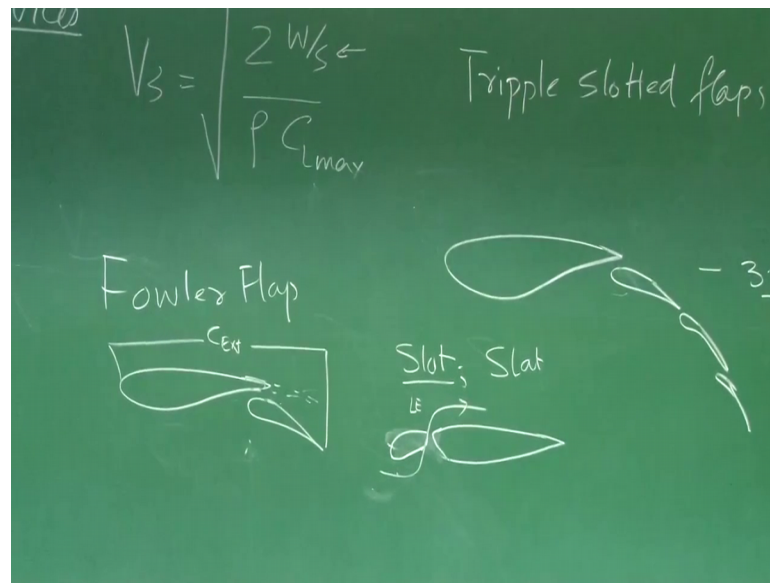 V_s = √(2 W/S ← / ρ C_Lmax)
Tripple slotted flaps
Fowler Flap
C_Ext
Slot; Slat
LE